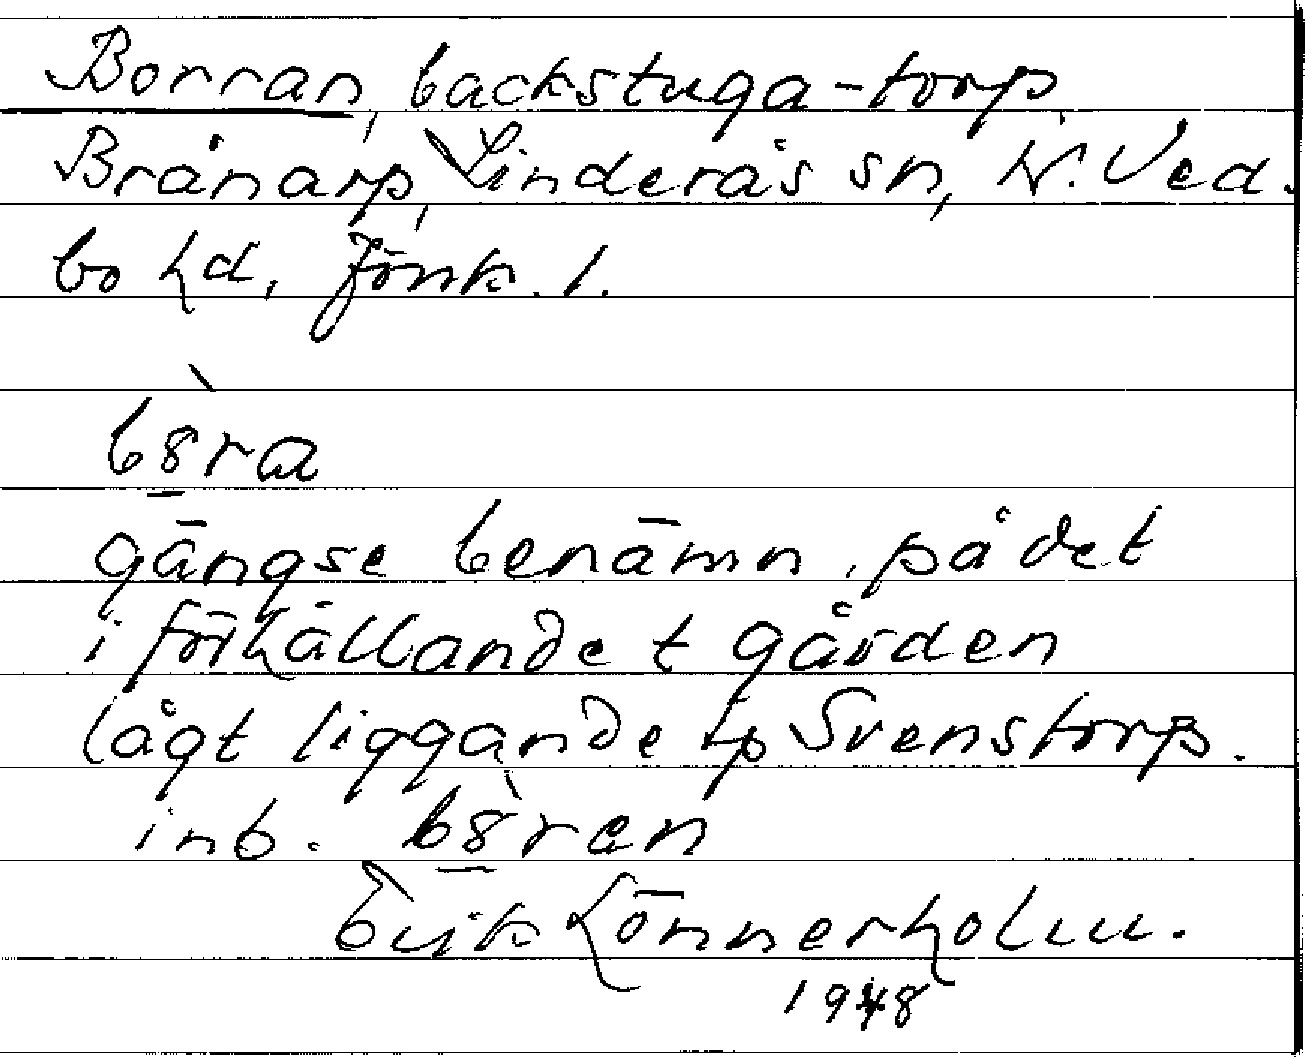 Borran, backstuga-torp,
Brånarp, Linderås sn, N. Ved-
bo hd, Jönk. l.
b8̲̀ra
gängse benämn. på det
i förhållande t gården
lågt liggande tp Svenstorp.
inb. b8̲̀ren
Erik Lönnerholm.
1948